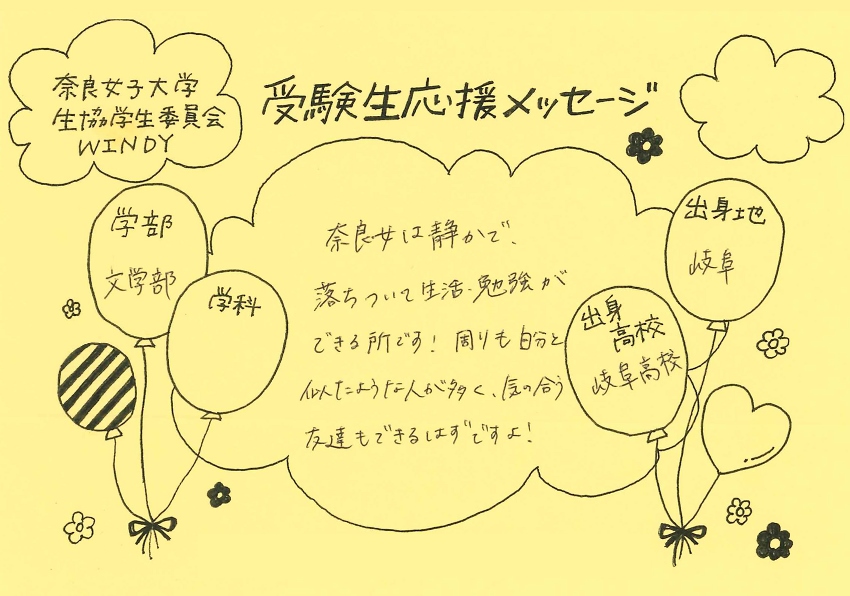 奈良女子大学
生協学生委員会
WINDY
受験生応援メッセージ
学部
文学部
学科
奈良女は静かで、
落ちついて生活・勉強が
できる所です！周りも自分と
似たような人が多く、気の合う
友達もできるはずですよ！
出身地
岐阜
出身
高校
岐阜高校